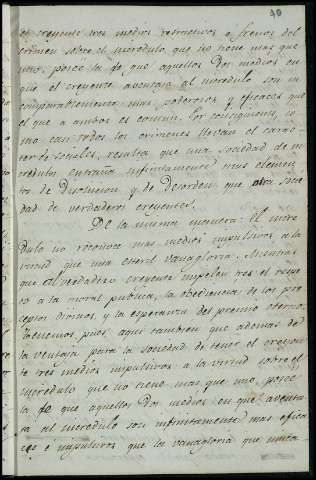 40
el creyente tres medios restrictivos o frenos del
crimen sobre el incredulo que no tiene mas que
uno, posee la fe que aquellos dos medios en
que el creyente aventaja al incredulo son in
comparablemente mas poderosos y eficaces que
el que a ambos es comun. Por consiguiente, co
mo casi todos los crimenes llevan el carac
ter de sociales, resulta que una sociedad de in
credulos entraña infinitamente mas elemen
tos de disolucion y de desorden que otra socie
dad de verdaderos creyentes.
De la misma manera: El incre
dulo no reconoce mas medios impulsivos a la
virtud que una esteril vanagloria. Mientras
que al verdadero creyente impelen tres el respe
to a la moral publica, la obediencia de los pre
ceptos divinos, y la esperanza del premio eterno.
Tenemos pues aqui tambien que ademas de
la ventaja para la sociedad de tener el creyen
te tres medios impulsivos a la virtud sobre el
incredulo que no tiene mas que uno, posee
la fe que aquellos dos medios en que aventa
ja al incredulo son infinitamente mas efica
ces e impulsivos que la vanagloria que nunca